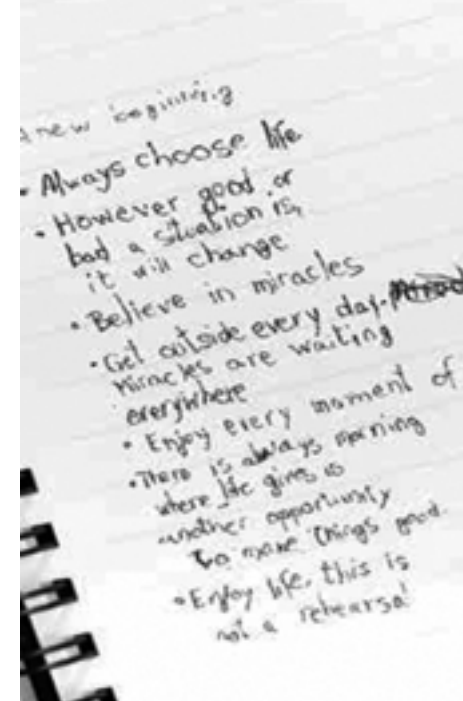 A new beginning
• Always choose life
• However good or
bad a situation is,
it will change
• Believe in miracles
• Get outside every day.
Miracles are waiting
everywhere
• Enjoy every moment of
• There is always morning
where life gives is
another opportunity
to make things good.
• Enjoy life, this is
not a rehearsal